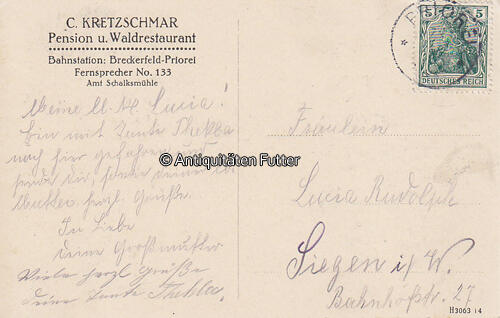 C. KRETZSCHMAR
Pension u. Waldrestaurant
Bahnstation: Breckerfeld-Priorei
Fernsprecher No. 133
Amt Schalksmühle
5 5
DEUTSCHES REICH
Meine Lucia!
Bin mit Tante Thekla
nach hier gefahren und
sende dir, sowie deiner lb.
Mutter herzl. Grüße.
In Liebe
deine Großmutter
Viele herzl Grüße
deine Tante Thekla.
© Antiquitäten Futter
Fräulein
Lucia Rudolph
Siegen i/W.
Bahnhofstr. 27
H3063 i 4